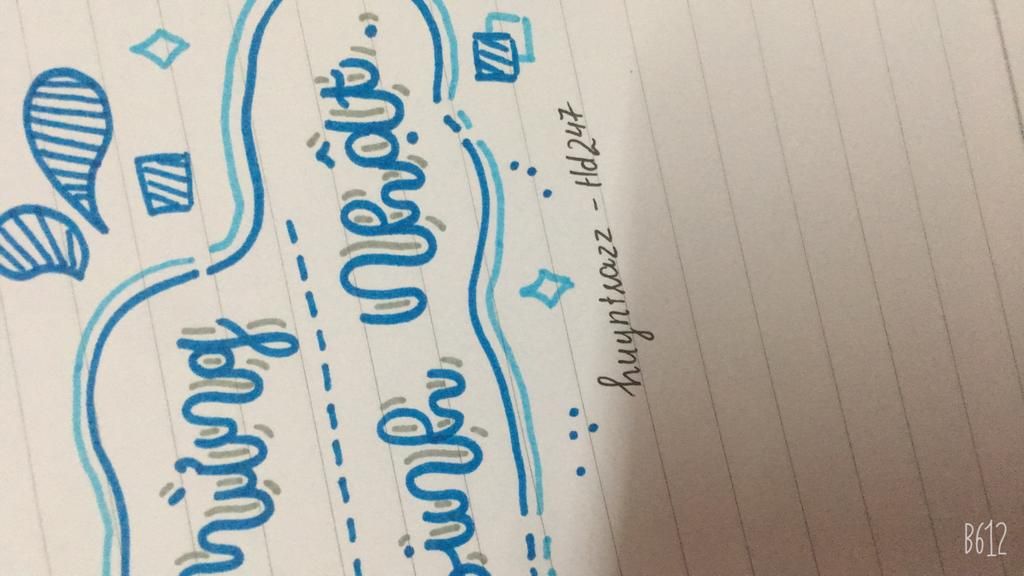 mừng
sinh Nhật..
huyntrazz - Hd247
B612